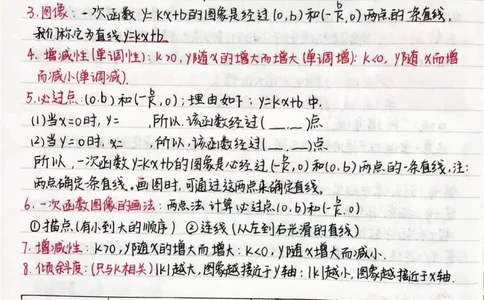 3.图像:一次函数y=kx+b的图象是经过(0,b)和(-b/k,0)两点的一条直线,
我们称它为直线y=kx+b.
4.增减性(单调性):k>0,y随x的增大而增大(单调增);k<0,y随x而增
而减小(单调减).
5.必过点:(0.b)和(-b/k,0);理由如下:y=kx+b中.
(1)当x=0时,y= ,所以.该函数经过(__.__)点
(2)当y=0时,x= ,所以,该函数经过(__.__)点.
所以,一次函数y=kx+b的图象是必经过(-b/k,0)和(0.b)两点的一条直线,注:
两点确定一条直线。画图时,可通过这两点来确定直线。
6.一次函数图像的画法:两点法:计算必过点(0.b)和(-b/k.0)
①描点(有小到大的顺序) ②连线(从左到右光滑的直线)
7.增减性:k>0,y随x的增大而增大:k<0,y随x增大而减小.
8.倾斜度:(只与k相关)|k|越大,图象越接近于y轴;|k|越小,图象越接近于x轴.